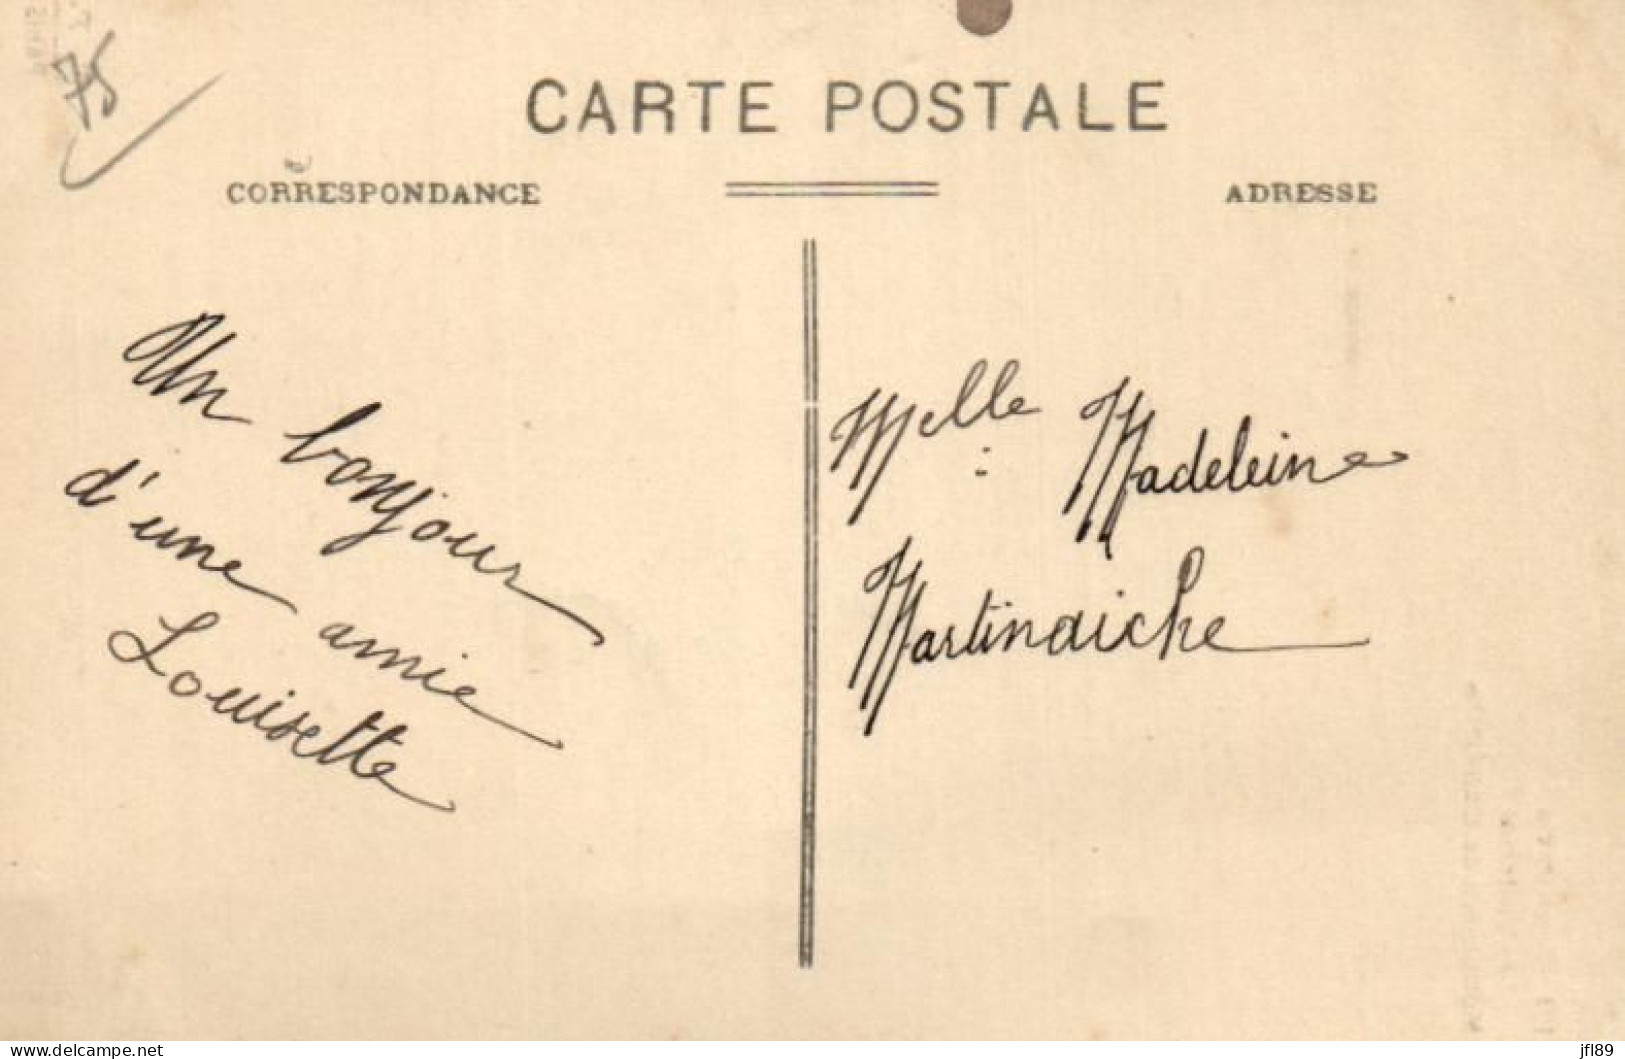 75
CARTE POSTALE
CORRESPONDANCE
ADRESSE
Un bonjour
d'une amie
Louisette
Melle Madeleine
Martinaiche
www.delcampe.net
jfl89